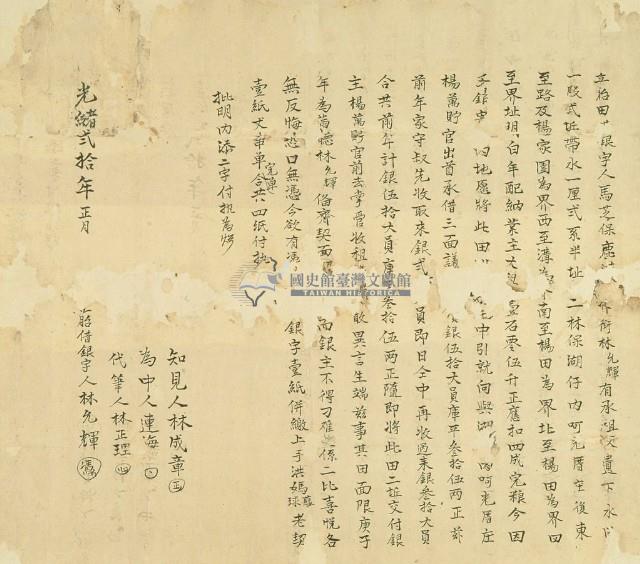 立胎田 銀字人馬芝保鹿 林允輝有承祖父遺下水田
一段弍坵帶水一厘弍系半址 二林保湖仔內呵 厝至後東
至路及楊家園為界西至溝為 南至楊田為界北至楊田為界四
至界址明白年配納業主大 石零伍升正應扣四成完粮今因
乏銀 田地愿將此田 中引就向與湖 呵 厝庄
楊萬貯官出首承借三面議 銀伍拾大員庫平叁拾伍兩正茲
前年家守叔先收取來銀弍 員即日仝中再收過來銀叁拾大員
合共前年計銀伍拾大員庫 叁拾伍兩正隨即將此田二坵交付銀
主楊萬貯官前去掌管收租 敢異言生端 事其田面限庚子
年為滿聽林允輝俻齊契面 銀主不得刁難 係二比喜悅各
無反悔恐口無憑今欲有 銀字壹紙併繳上手洪媽 球老契
壹紙丈单 合共四紙付
完单
批明內添二字付執為炤
知見人林成章
為中人連海
代筆人林正理
借銀字人林允輝
光緒弍拾年正月
國史館臺灣文獻館
TAIWAN HISTORICA